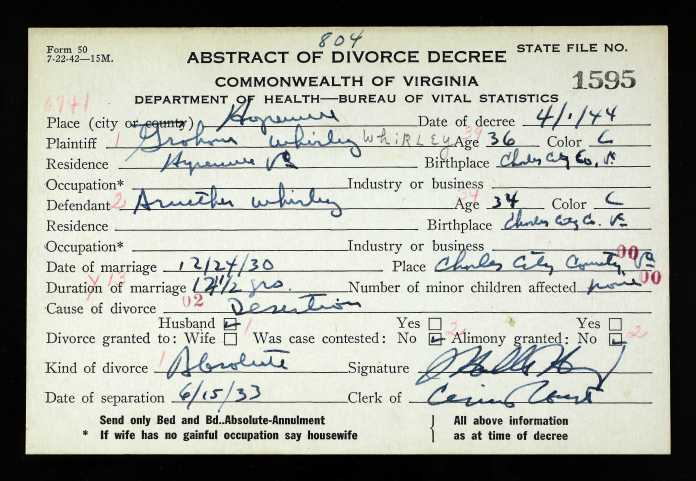 804
Form 50
7-22-42—15M.
ABSTRACT OF DIVORCE DECREE
STATE FILE NO.
COMMONWEALTH OF VIRGINIA
1595
DEPARTMENT OF HEALTH—BUREAU OF VITAL STATISTICS
Place (city or county) Date of decree 4/1/44
Plaintiff 1 Whirley WHIRLEY Age 36 Color C
Residence Va Birthplace Charles City Co. Va
Occupation* Industry or business
Defendant 2 Whirley Age 34 Color C
Residence Birthplace Charles City Co. Va
Occupation* Industry or business
Date of marriage 12/24/30 Place Charles City County, Va 00
Duration of marriage yrs. Number of minor children affected none 00
Cause of divorce 02 Desertion
Husband Yes Yes
Divorce granted to: Wife 1 Was case contested: No 2 Alimony granted: No 2
Kind of divorce 1 Absolute Signature
Date of separation 6/15/33 Clerk of Court
Send only Bed and Bd..Absolute-Annulment
* If wife has no gainful occupation say housewife
All above information
as at time of decree